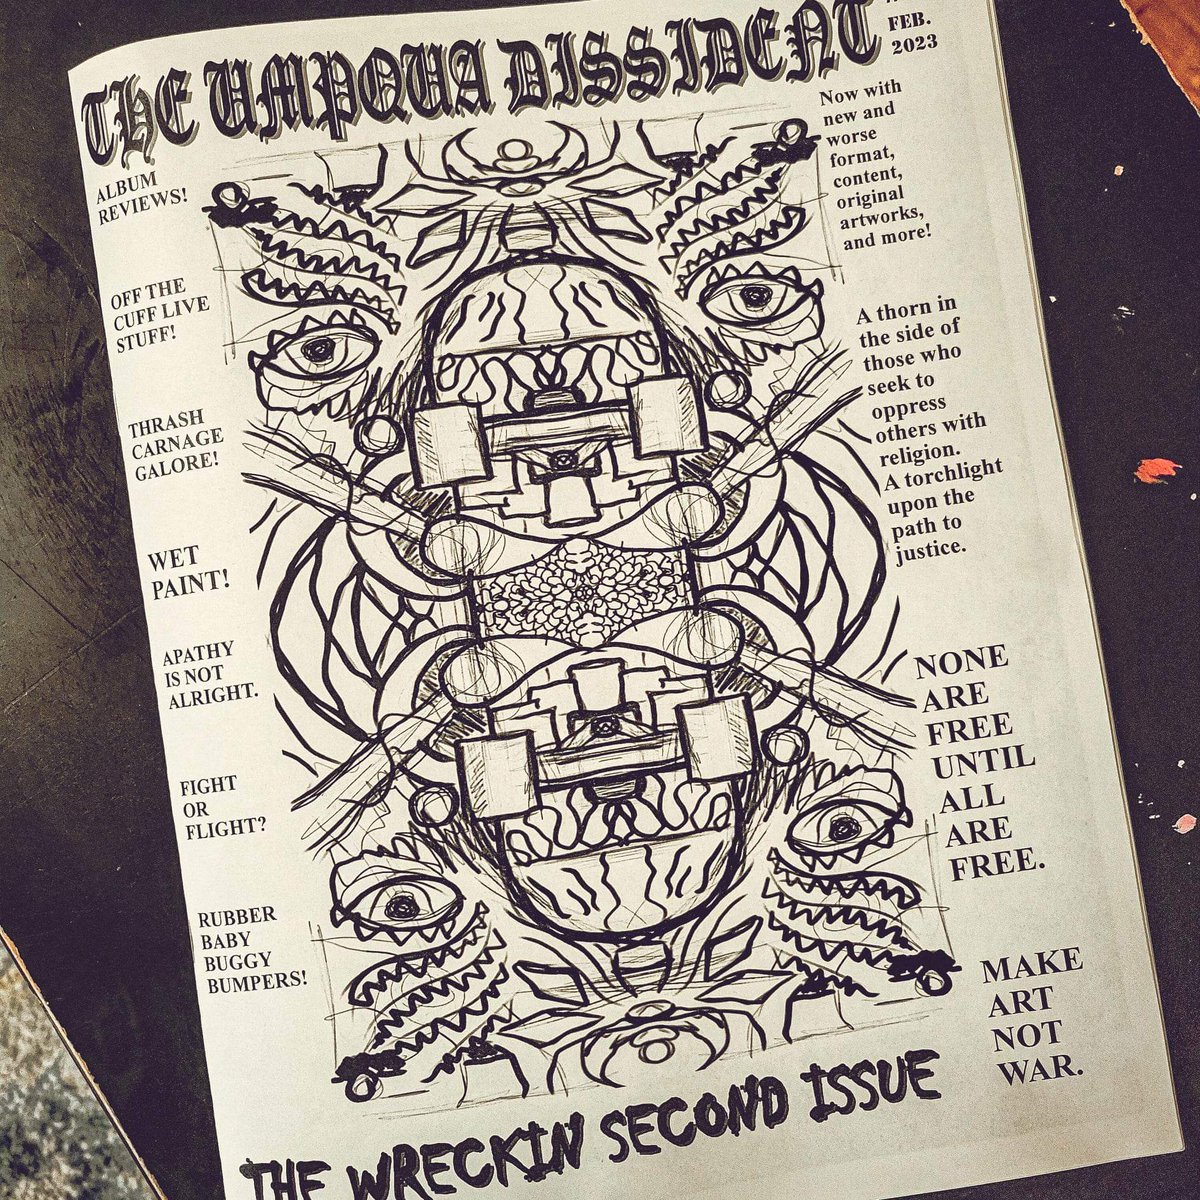 THE UMPQUA DISSIDENT
FEB.
2023
ALBUM
REVIEWS!
OFF THE
CUFF LIVE
STUFF!
THRASH
CARNAGE
GALORE!
WET
PAINT!
APATHY
IS NOT
ALRIGHT.
FIGHT
OR
FLIGHT?
RUBBER
BABY
BUGGY
BUMPERS!
Now with
new and
worse
format,
content,
original
artworks,
and more!
A thorn in
the side of
those who
seek to
oppress
others with
religion.
A torchlight
upon the
path to
justice.
NONE
ARE
FREE
UNTIL
ALL
ARE
FREE.
MAKE
ART
NOT
WAR.
THE WRECKIN SECOND ISSUE